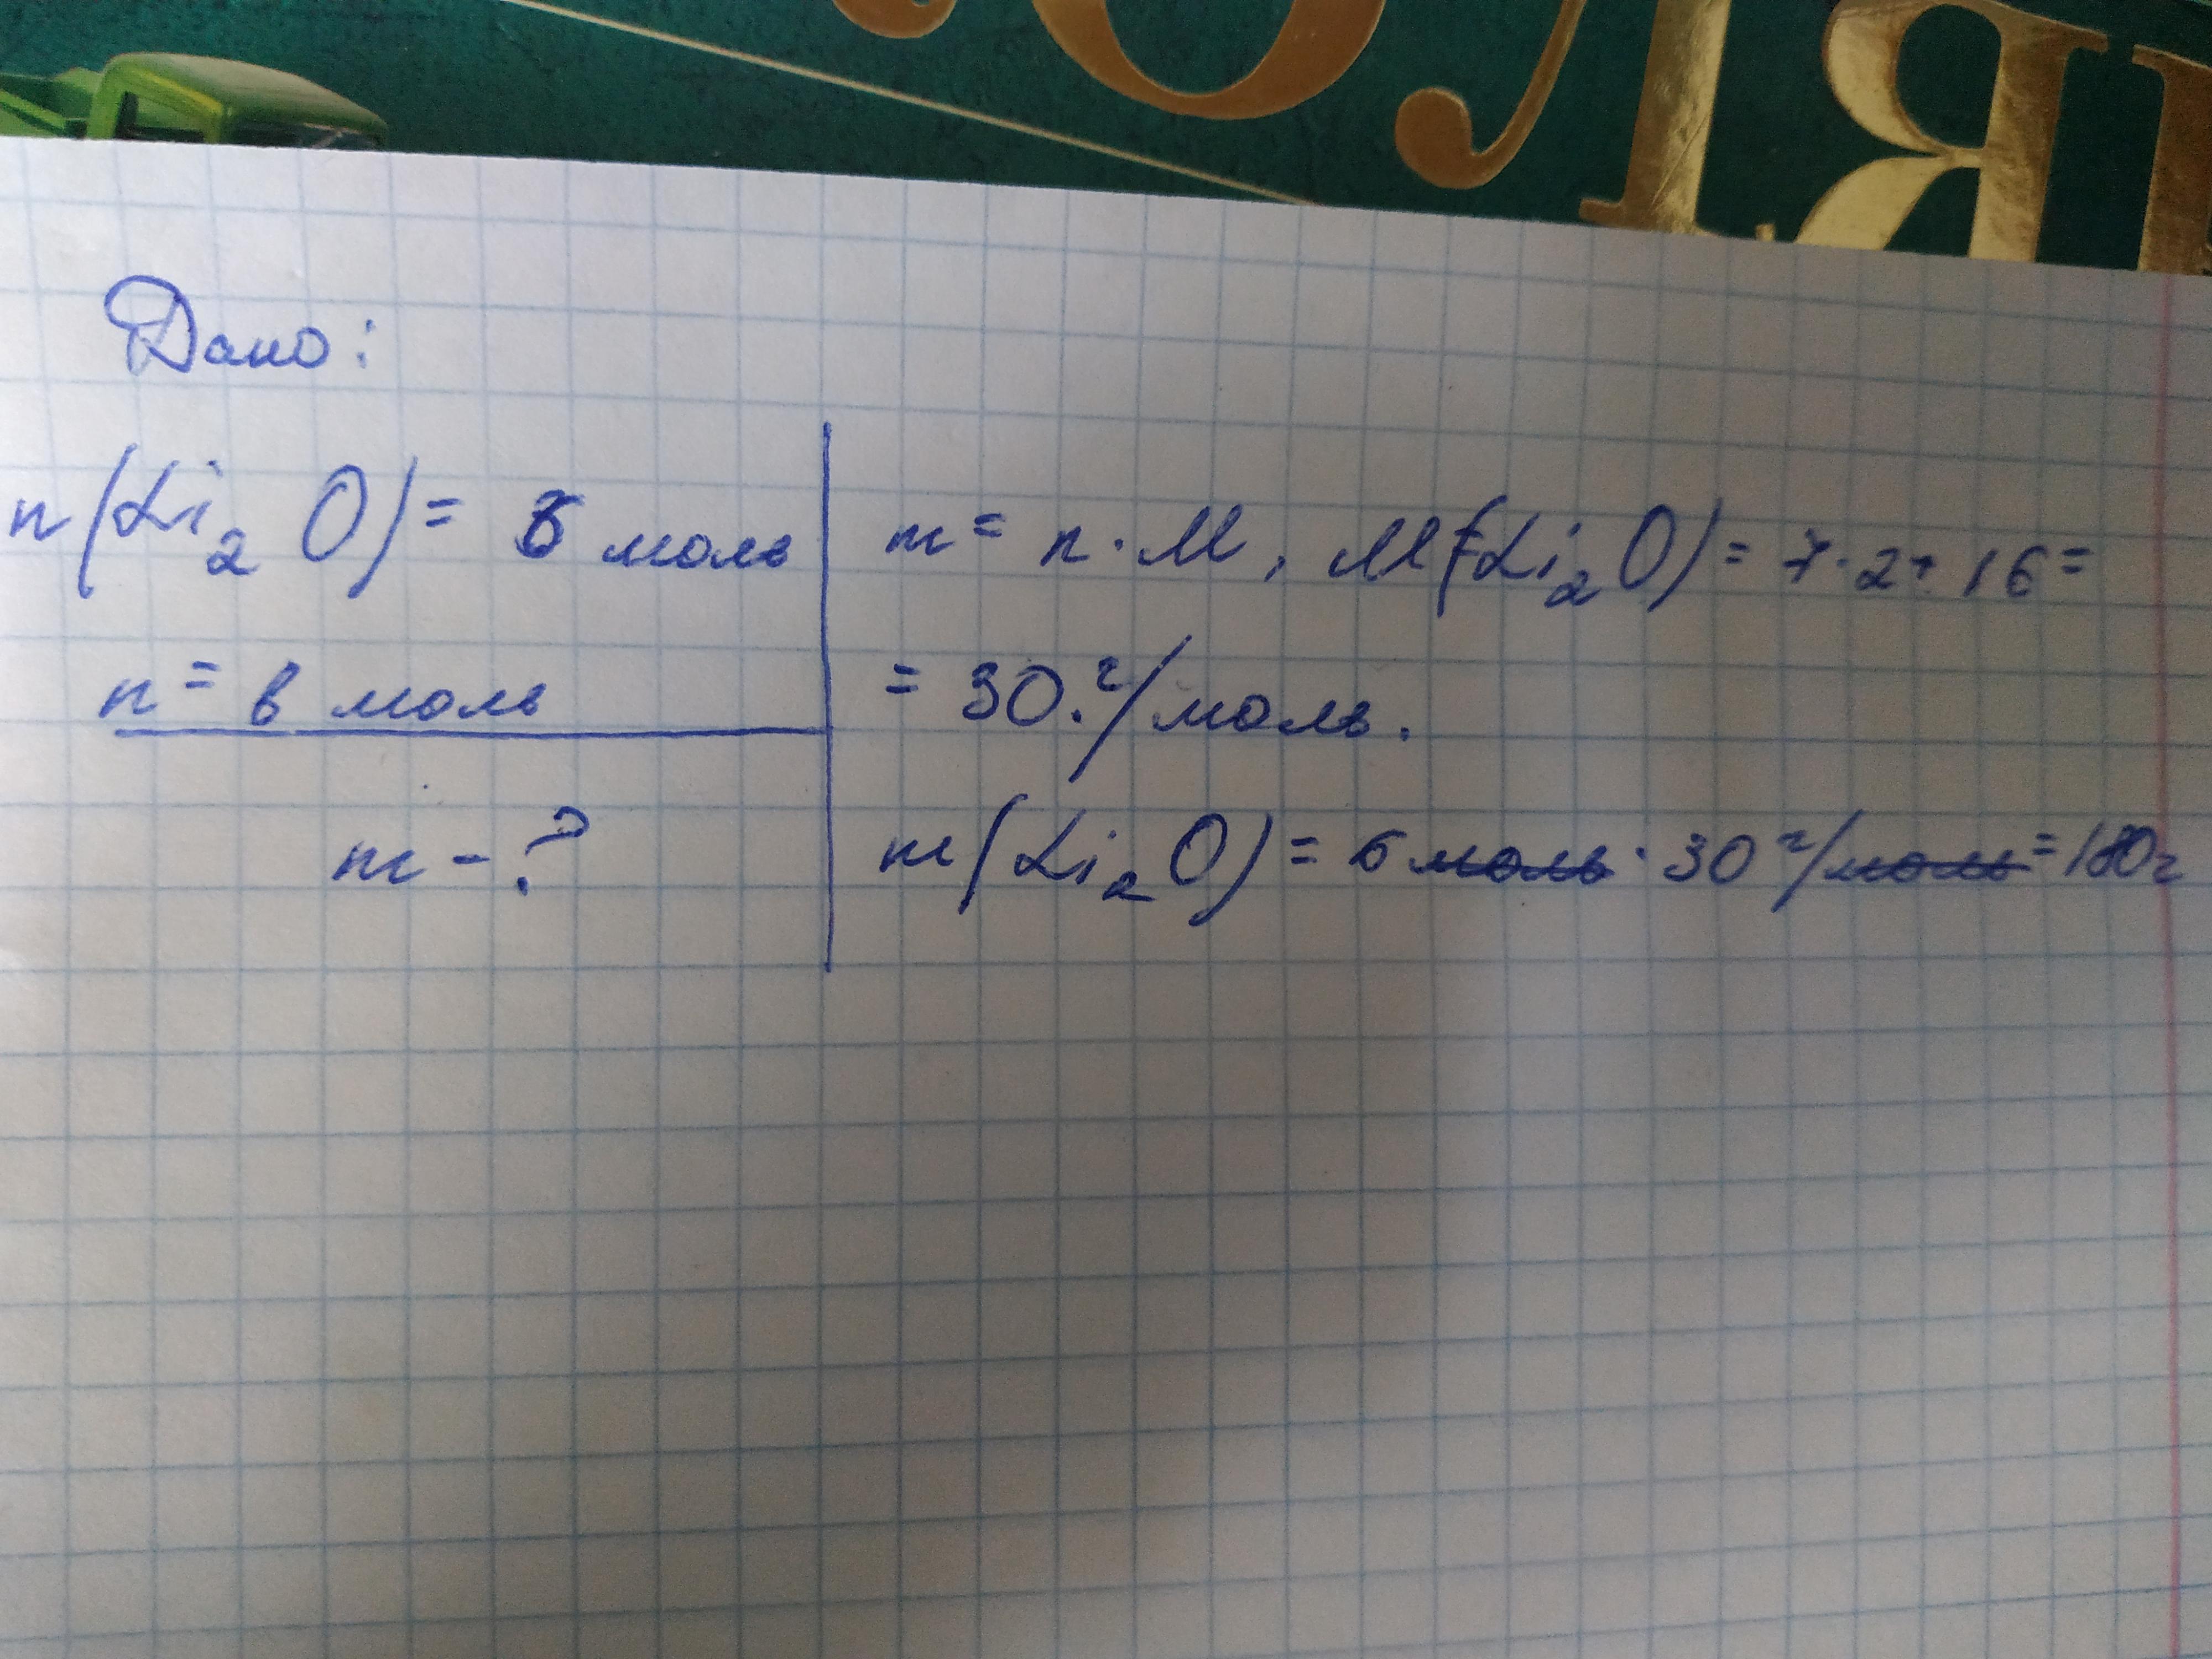 ОЛЯ
Дано:
n(Li₂O) = 6 моль
n = 6 моль
m - ?
m = n · M, M(Li₂O) = 7·2+16=
= 30 г/моль.
m(Li₂O) = 6 моль · 30 г/моль = 180г